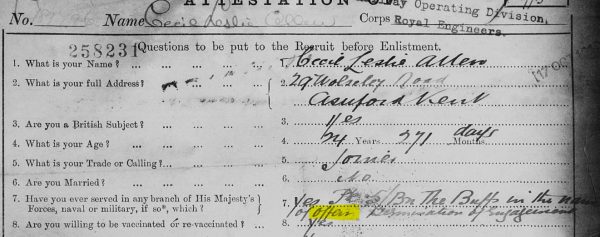 ATTESTATION OF
No. Name Cecil Leslie Allen Corps Royal Engineers.
ay Operating Division,
258231 Questions to be put to the Recruit before Enlistment.
1. What is your Name? ... ... ... ... 1. Cecil Leslie Allen
2. What is your full Address? 2. 29 Wolseley Road
Ashford Kent
3. Are you a British Subject? ... ... ... 3. Yes
4. What is your Age? ... ... ... ... 4. 24 Years 271 days Months
5. What is your Trade or Calling? ... ... ... 5. Joiner
6. Are you Married? ... ... ... ... 6. No
7. Have you ever served in any branch of His Majesty's 7. Yes 5 Bn The Buffs in the
Forces, naval or military, if so*, which? of Termination of Engagement
8. Are you willing to be vaccinated or re-vaccinated? ... 8. Yes